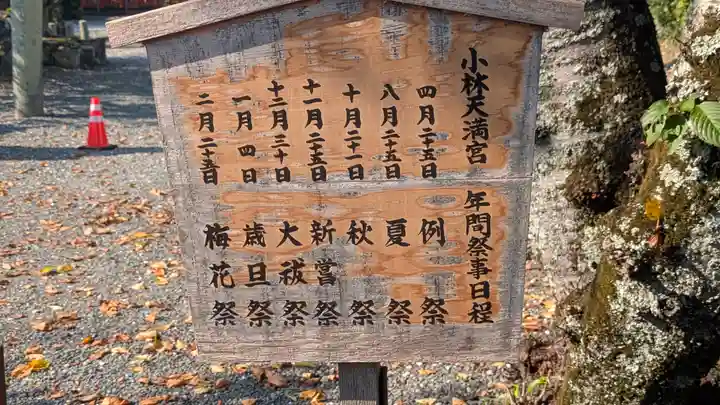 小林天満宮 年間祭事日程
四月二十五日 例祭
八月二十五日 夏祭
十月二十一日 秋祭
十一月二十五日 新嘗祭
十二月三十日 大祓祭
一月四日 歳旦祭
二月二十五日 梅花祭